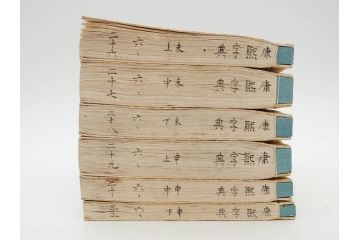 康熙字典 未上 六 二十六
康熙字典 未中 六 二十七
康熙字典 未下 六 二十八
康熙字典 申上 六 二十九
康熙字典 申中 六 三十
康熙字典 申下 六